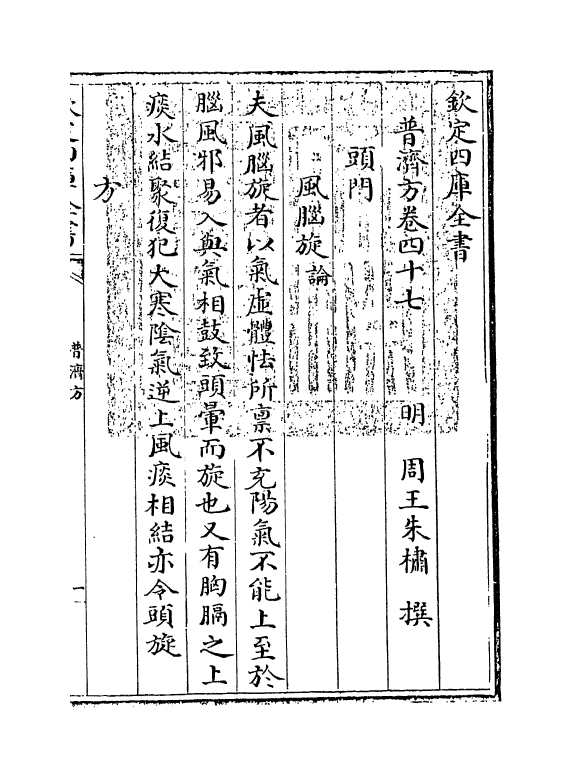 欽定四庫全書
普濟方卷四十七　明　周王朱橚　撰
頭門
風腦旋論
夫風腦旋者以氣虛體怯所禀不充陽氣不能上至於
腦風邪易入與氣相鼓致頭暈而旋也又有胸膈之上
痰水結聚復犯大寒陰氣逆上風痰相結亦令頭旋
方
普濟方
一